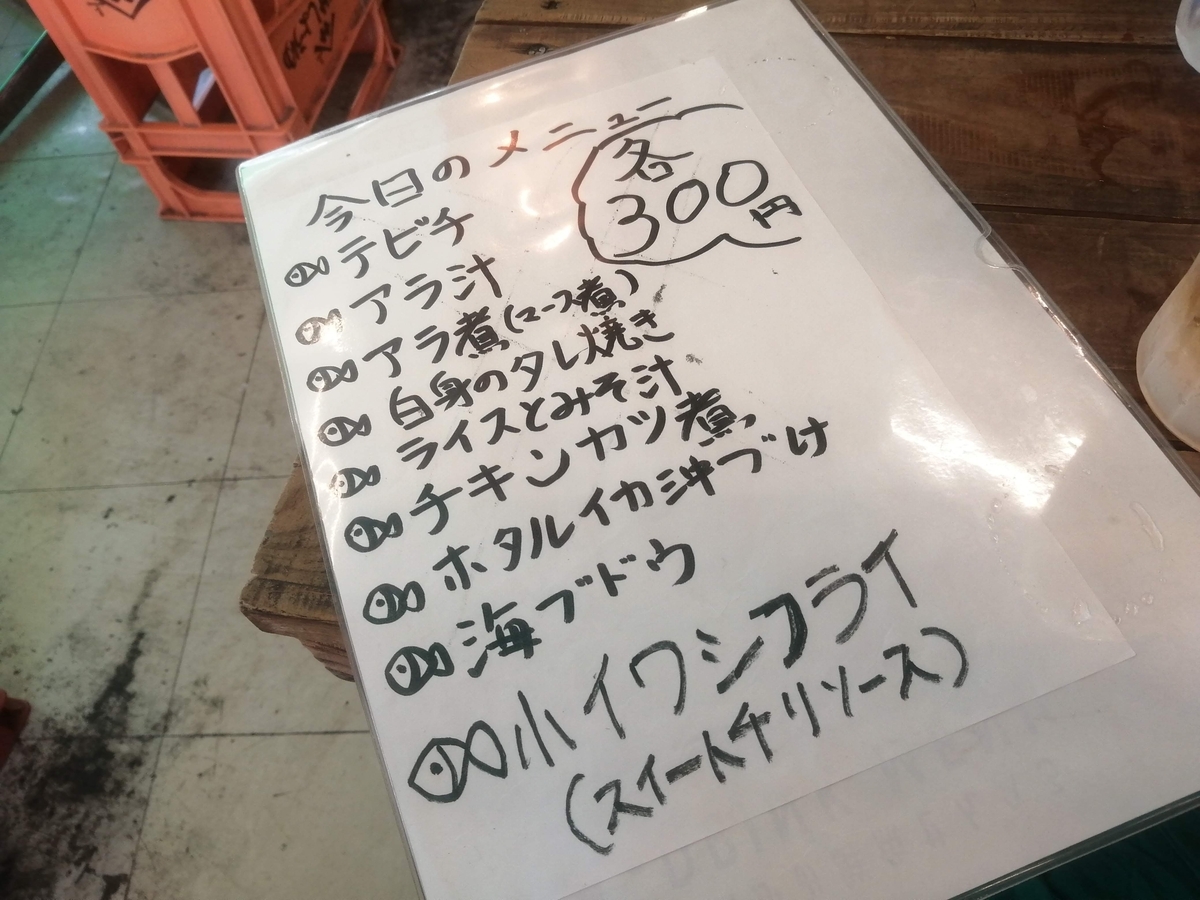 今日のメニュー
各
300
円
テビチ
アラ汁
アラ煮(マース煮)
白身のタレ焼き
ライスとみそ汁
チキンカツ煮
ホタルイカ沖づけ
海ブドウ
小イワシフライ
(スイートチリソース)